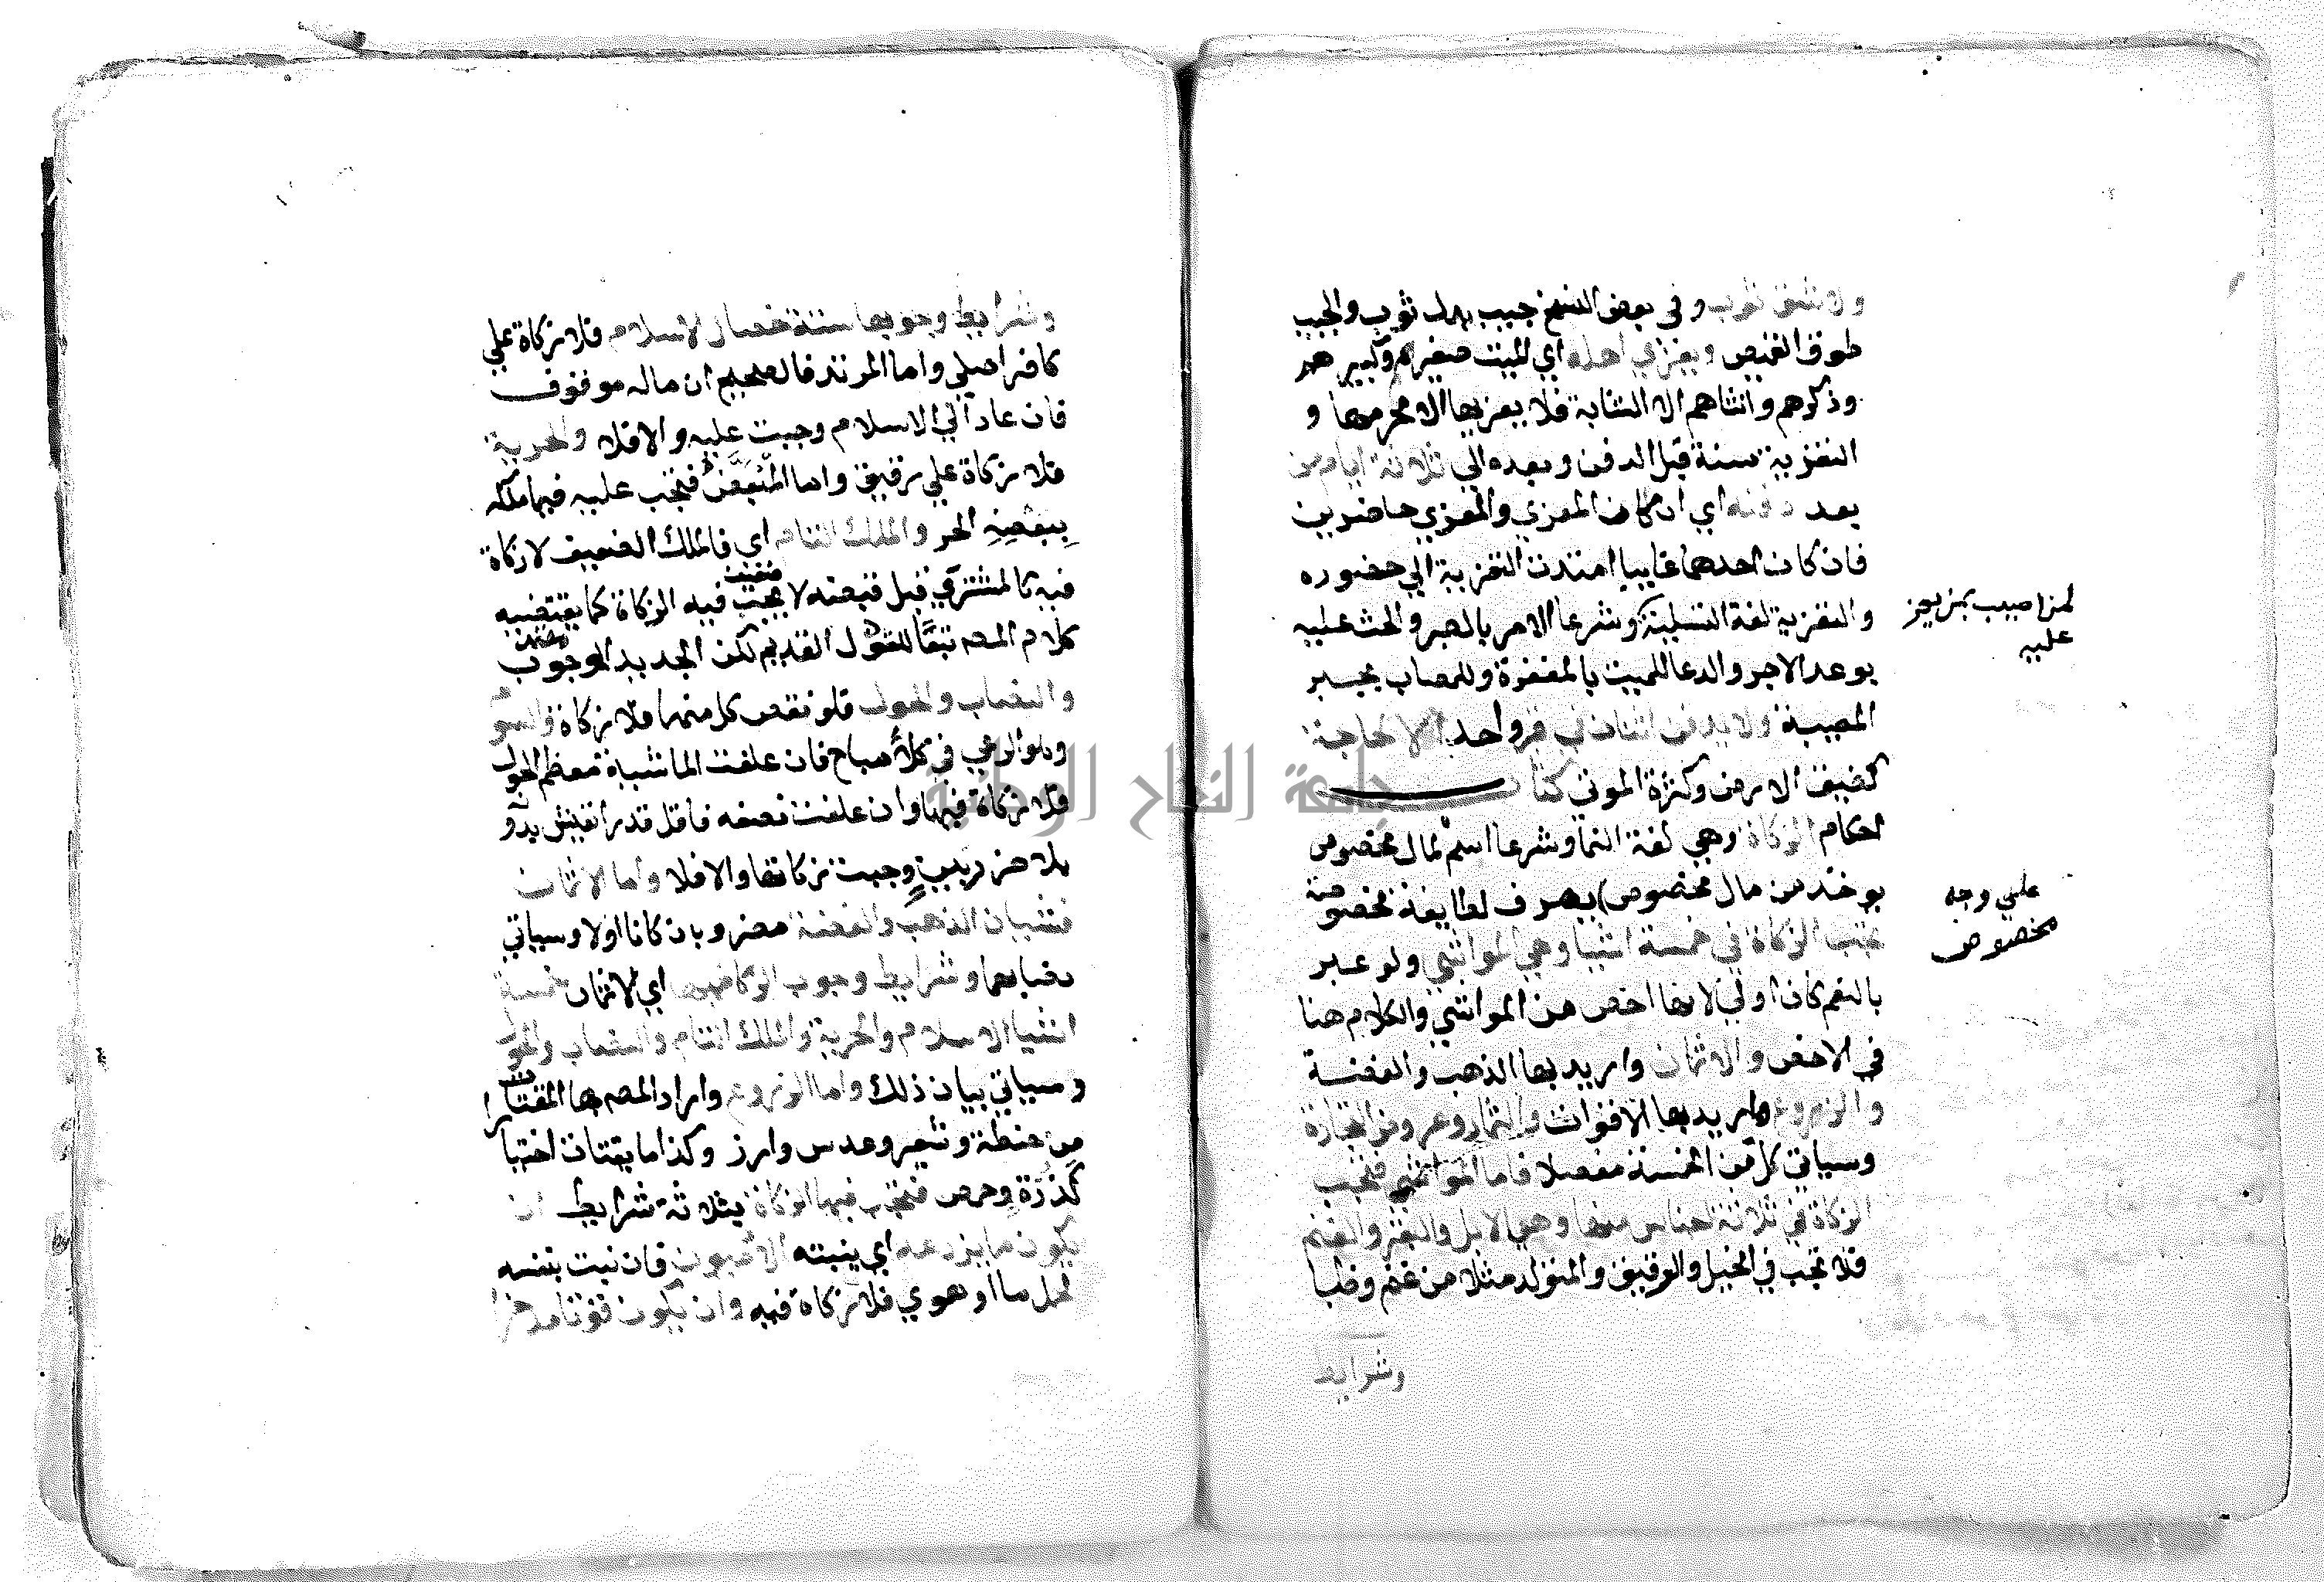 ولا شق ثوب وفي بعض النسخ جيب بدل ثوب والجيب
طوق القميص ويعزي اهله اي الميت صغيرهم وكبيرهم
وذكرهم وانثاهم الا الشابة فلا يعزيها الا محرمها و
التعزية سنة قبل الدفن وبعده الي ثلاثة ايام من
بعد دفنه اي ان كان المعزي والمعزي حاضرين
فان كان احدهما غايبا امتدت التعزية الي حضوره
والتعزية لغة التسلية وشرعا الامر بالصبر والحث عليه
لمن اصيب بمن يعز
عليه
بوعد الاجر والدعا للميت بالمغفرة وللمصاب بجبر
المصيبة ولا يدفن اثنان في قبر واحد الا لحاجة
كضيق الارض وكثرة الموتي كتاب
احكام الزكاة وهي لغة النما وشرعا اسم لمال مخصوص
يوخذ من مال مخصوص يصرف لطايفة مخصوصة
علي وجه
مخصوص
تجب الزكاة في خمسة اشيا وهي المواشي ولو عبر
بالنعم لكان اولي لانها اخص من المواشي والكلام هنا
في الاخص والاثمان واريد بها الذهب والفضة
والزروع واريد بها الاقوات والثمار وعروض التجارة
وسياتي كل من الخمسة مفصلا فاما المواشي فتجب
الزكاة في ثلاثة اجناس منها وهي الابل والبقر والغنم
فلا تجب في الخيل والرقيق والمتولد مثلا من غنم وظبا
وشرايط
وشرايط وجوبها ستة خصال الاسلام فلا زكاة علي
كافر اصلي واما المرتد فالصحيح ان ماله موقوف
فان عاد الي الاسلام وجبت عليه والا فلا والحرية
فلا زكاة علي رقيق واما المبعض فتجب عليه فيما ملكه
ببعضه الحر والملك التام اي فالملك الضعيف لا زكاة
فيه كالمشتري قبل قبضه لا تجب فيه الزكاة كما يقتضيه
كلام المصه تبعا للقول القديم لكن الجديد الوجوب
والنصاب والحول فلو نقص كل منهما فلا زكاة والسو
وهو الرعي في كلأ مباح فان علفت الماشية معظم الحول
فلا زكاة فيها وان علفت نصفه فاقل قدرا تعيش بدو
بلا ضرر بين وجبت زكاتها والا فلا واما الاثمان
فشيان الذهب والفضة مضروبان كانا اولا وسياتي
نصابهما وشرايط وجوب الزكاة فيها اي الاثمان خمسة
اشيا الاسلام والحرية والملك التام والنصاب والحول
وسياتي بيان ذلك واما الزروع واراد المصه بها المقتات
من حنطة وشعير وعدس وارز وكذا ما يقتات اختيارا
كذرة وحمص فتجب فيها الزكاة بثلاثة شرايط ان
يكون مما يزرعه اي ينبته الادميون فان نبت بنفسه
لحمل ما او هوي فلا زكاة فيه وان يكون قوتا مدخرا
جامعة النجاح الوطنية